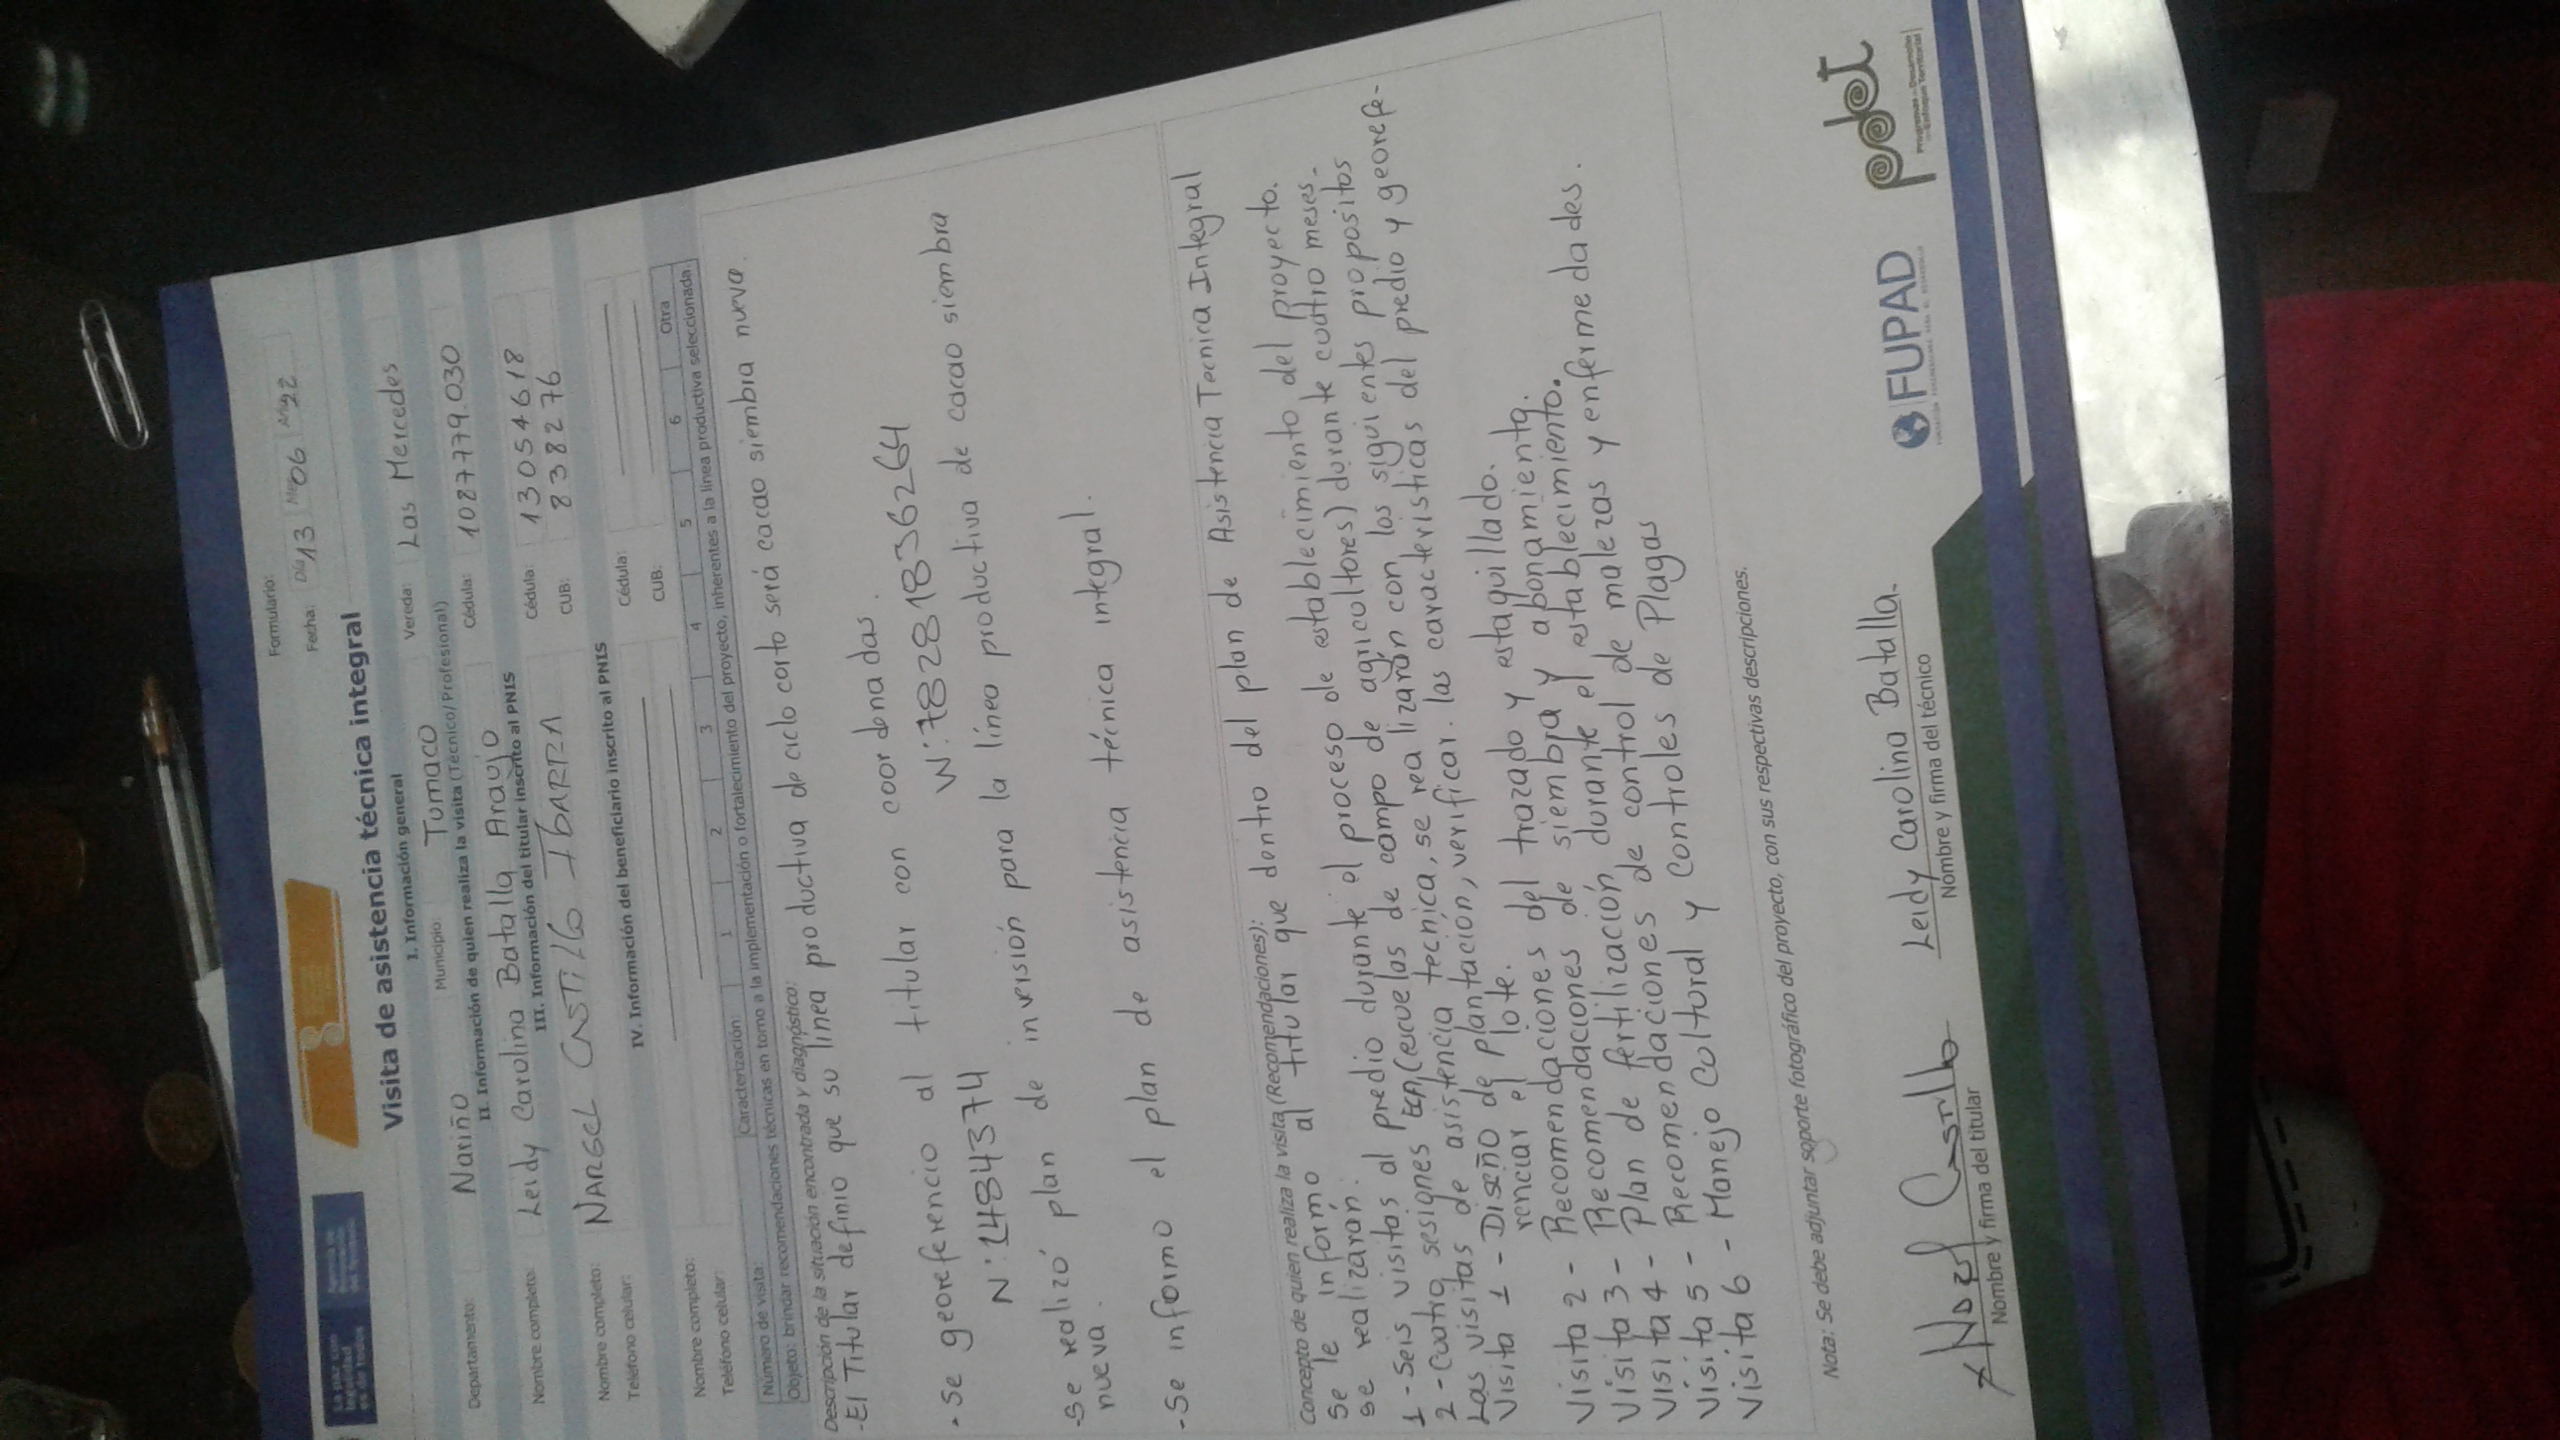 La paz con
legalidad
es de todos
Formulario:
Fecha: Día 13 Mes 06 Año 22
Visita de asistencia técnica integral
I. Información general
Departamento: Nariño Municipio: Tumaco Vereda: Las Mercedes
II. Información de quien realiza la visita (Técnico/Profesional)
Nombre completo: Leidy Carolina Batalla Araujo Cédula: 1087779.030
III. Información del titular inscrito al PNIS
Nombre completo: NARGEL CASTILLO IBARRA Cédula: 13054618
Teléfono celular: CUB: 838276
IV. Información del beneficiario inscrito al PNIS
Nombre completo: Cédula:
Teléfono celular: CUB:
Número de visita: Caracterización: 1 2 3 4 5 6 Otra
Objeto: brindar recomendaciones técnicas en torno a la implementación o fortalecimiento del proyecto, inherentes a la línea productiva seleccionada.
Descripción de la situación encontrada y diagnóstico:
-El Titular definio que su línea productiva de ciclo corto será cacao siembra nueva.
- Se georeferencio al titular con coordenadas.
N:1484374 W:78281836264
-Se realizó plan de inversión para la línea productiva de cacao siembra
nueva.
-Se informo el plan de asistencia técnica integral.
Concepto de quien realiza la visita (Recomendaciones):
Se le informo al titular que dentro del plan de Asistencia Tecnica Integral
se realizarán:
1 - Seis visitas al predio durante el proceso de establecimiento del proyecto.
2 - Cuatro sesiones ECA (escuelas de campo de agricultores) durante cuatro meses.
Las visitas de asistencia tecnica, se realizarán con los siguientes propositos
Visita 1 - Diseño de plantación, verificar las caracteristicas del predio y georefe-
renciar el lote.
Visita 2 - Recomendaciones del trazado y estaquillado.
Visita 3 - Recomendaciones de siembra y abonamiento.
Visita 4 - Plan de fertilización durante el establecimiento.
Visita 5 - Recomendaciones de control de malezas y enfermedades.
Visita 6 - Manejo Cultural y Controles de Plagas
Nota: Se debe adjuntar soporte fotográfico del proyecto, con sus respectivas descripciones.
Castillo Leidy Carolina Batalla.
Nombre y firma del titular Nombre y firma del técnico
FUPAD
pdet
Programas de Desarrollo
con Enfoque Territorial